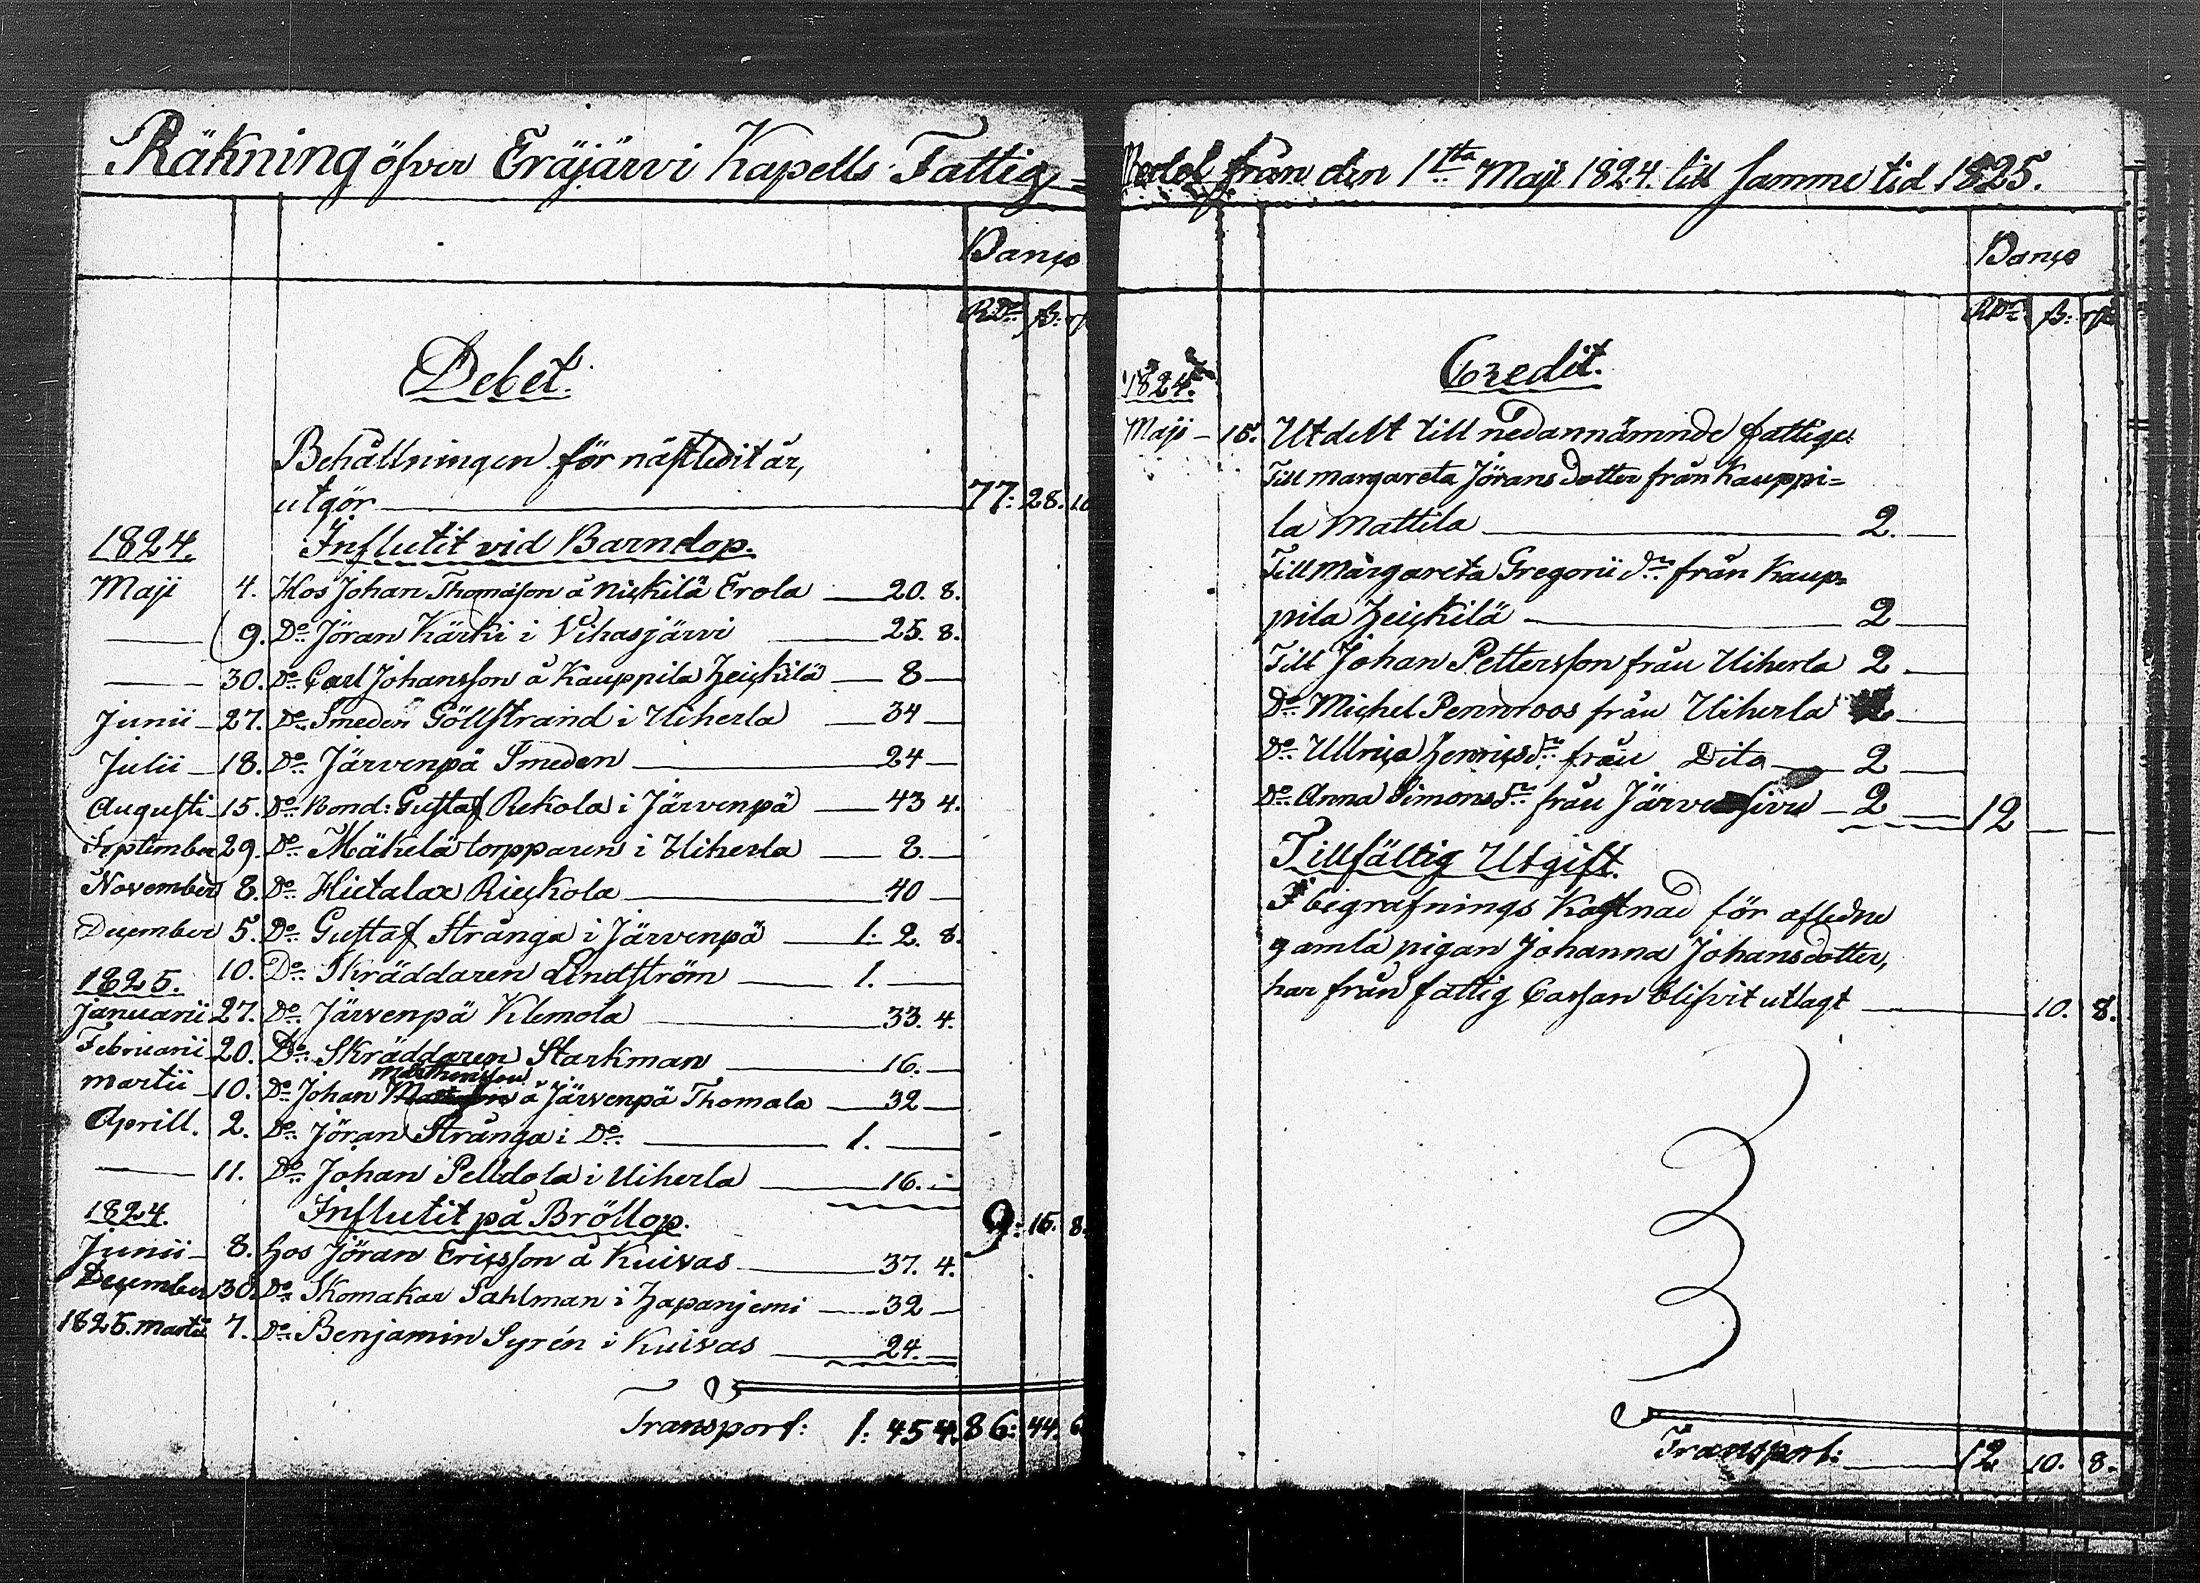 Räkning öfver Eräjärvi Kapells Fattig-
Banço
RD:r ß: rst
Debet.
Behållningen för nästledit år,
utgör 77: 28. 10
1824. Influtit vid Barndop.
Maji 4. Hos Johan Thomasson å Niçkilä Erola 20. 8.
9. D:o Jöran Kärki i Vihasjärvi 25. 8.
30. D:o Carl Johansson å Kauppila Heiçkilä 8
Junii 27. D:o Smeden Göllstrand i Uiherla 34
Julii 18. D:o Järvenpä Smeden 24
Augusti 15. D:o Bond: Gustaf Rekola i Järvenpä 43 4.
September 29. D:o Mäkelä torpparen i Uiherla 8.
November 8. D:o Hietalax Rieçkola 40
Deçember 5. D:o Gustaf Stränga i Järvenpä 1: 2. 8.
10. D:o Skräddaren Lindström 1.
1825.
Januarii 27. D:o Järvenpä Klemola 33. 4.
Februarii 20. D:o Skräddaren Starkman 16.
Martii 10. D:o Johan Mårthensson å Järvenpä Thomala 32
Aprill. 2. D:o Jöran Stränga i D:o 1.
11. D:o Johan Pelldola i Uiherla 16.
1824. Influtit på Bröllop. 9: 15. 8.
Junii 8. Hos Jöran Ericsson å Kuivas 37. 4.
Deçember 30. D:o Skomakar Sahlman i Hapanjemi 32
1825. Martii 7. D:o Benjamin Syrén i Kuivas 24.
Transport: 1: 45 4. 86: 44. 6
Medel från den 1sta Maji 1824. till samme tid 1825.
Banço
RD:r ß: rst
Credit.
1824.
Maji 15. Utdelt till nedannämnde fattige:
Till Margareta Jörans dotter från Kauppi=
la Mattila 2.
Till Margareta Gregorii d:r från Kaup=
pila Heiçkilä 2
Till Johan Pettersson från Uiherla 2
D:o Michel Pennroos från Uiherla 2
D:o Ullriça Henriçs d:r från Dito 2
D:o Anna Simons d:r från Järvensivu 2 12
Tillfällig Utgift.
I begrafnings Kostnad för afledne
gamla pigan Johanna Johansdotter,
har från fattig Cassan blifvit utlagt 10. 8.
Transport: 12 10. 8.